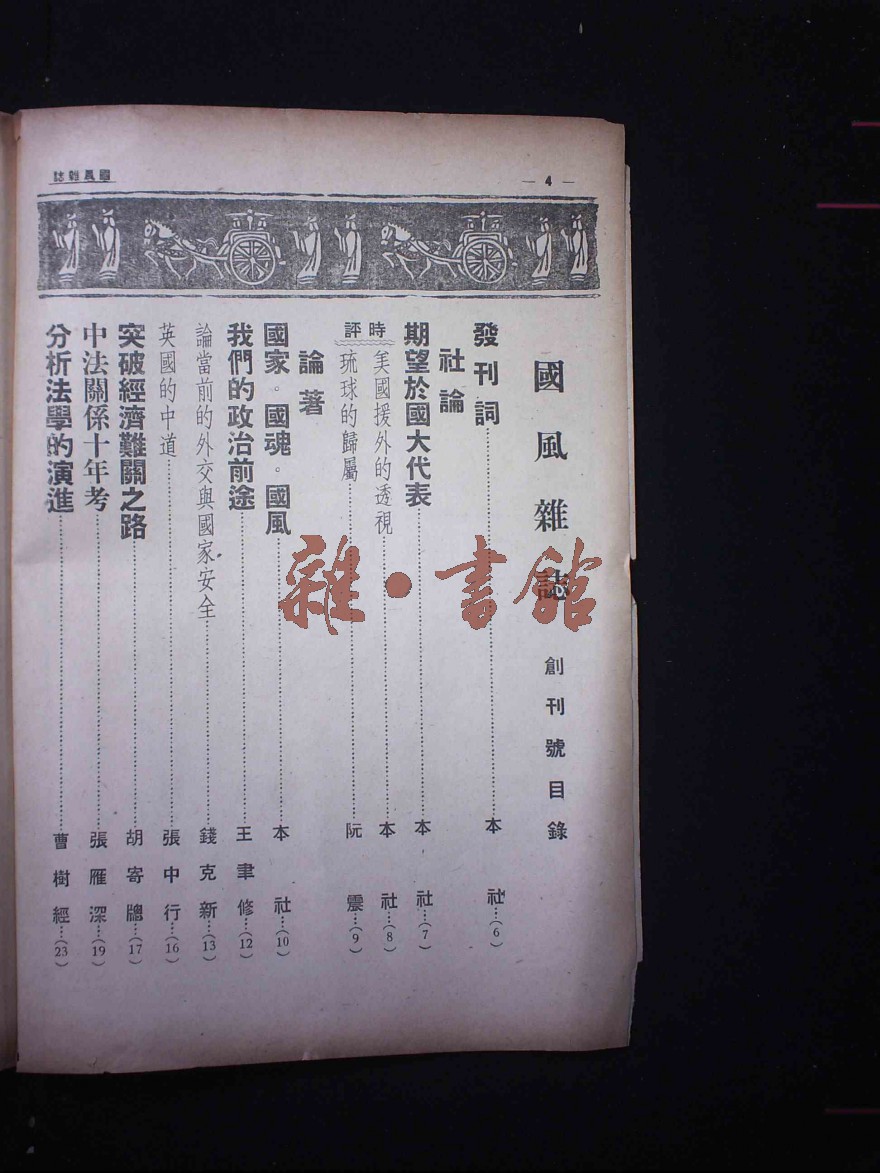 國風雜誌
— 4 —
國風雜誌 創刊號目錄
發刊詞……本社…(6)
社論
期望於國大代表……本社…(7)
時評
美國援外的透視……本社…(8)
琉球的歸屬……阮震…(9)
論著
國家。國魂。國風……本社…(10)
我們的政治前途……王聿修…(12)
論當前的外交與國家安全……錢克新…(13)
英國的中道……張中行…(16)
突破經濟難關之路……胡寄牕…(17)
中法關係十年考……張雁深…(19)
分析法學的演進……曹樹經…(23)
雜·書館